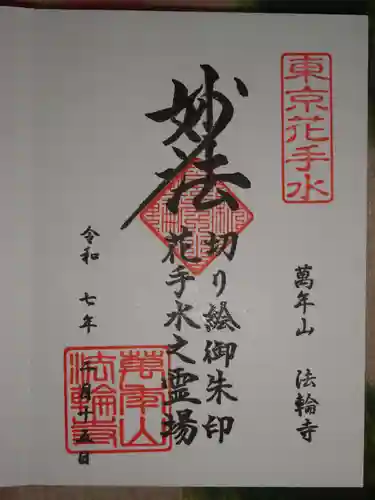 東京花手水
萬年山 法輪寺
妙法
切り絵御朱印
花手水之霊場
令和 七年
十月十五日
萬年山
法輪寺